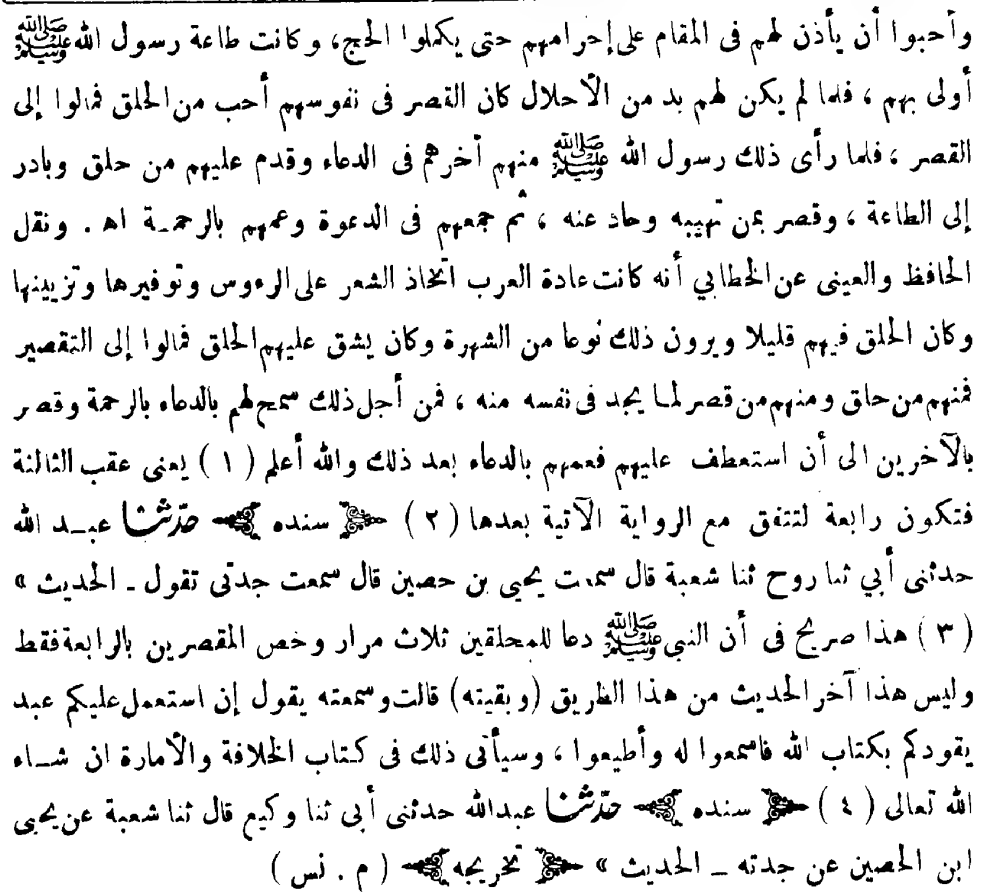 وأحبوا أن يأذن لهم فى المقام على إحرامهم حتى يكملوا الحج، وكانت طاعة رسول الله ﷺ
أولى بهم ، فلما لم يكن لهم بد من الأحلال كان القصر فى نفوسهم أحب من الحلق فمالوا إلى
القصر ، فلما رأى ذلك رسول الله ﷺ منهم أخرهم فى الدعاء وقدم عليهم من حلق وبادر
إلى الطاعة ، وقصر بمن تهيبه وحاد عنه ، ثم جمعهم فى الدعوة وعمهم بالرحمة اه . ونقل
الحافظ والعينى عن الخطابي أنه كانت عادة العرب اتخاذ الشعر على الرءوس وتوفيرها وتزيينها
وكان الحلق فيهم قليلا ويرون ذلك نوعا من الشهرة وكان يشق عليهم الحلق فمالوا إلى التقصير
فمنهم من حلق ومنهم من قصر لما يجد فى نفسه منه ، فمن أجل ذلك سمح لهم بالدعاء بالرحمة وقصر
بالآخرين الى أن استعطف عليهم فعمهم بالدعاء بعد ذلك والله أعلم ( ١ ) يعنى عقب الثالثة
فتكون رابعة لتتفق مع الرواية الآتية بعدها ( ٢ ) ﴿ سنده ﴾ حدّثنا عبد الله
حدثنى أبي ثنا روح ثنا شعبة قال سمعت يحيى بن حصين قال سمعت جدتى تقول ـ الحديث »
( ٣ ) هذا صريح فى أن النبي ﷺ دعا للمحلقين ثلاث مرار وخص المقصرين بالرابعة فقط
وليس هذا آخر الحديث من هذا الطريق (وبقيته) قالت وسمعته يقول إن استعمل عليكم عبد
يقودكم بكتاب الله فاسمعوا له وأطيعوا ، وسيأتى ذلك فى كتاب الخلافة والأمارة ان شاء
الله تعالى ( ٤ ) ﴿ سنده ﴾ حدّثنا عبدالله حدثنى أبى ثنا وكيع قال ثنا شعبة عن يحيى
ابن الحصين عن جدته ـ الحديث » ﴿ تخريجه ﴾ ( م . نس )